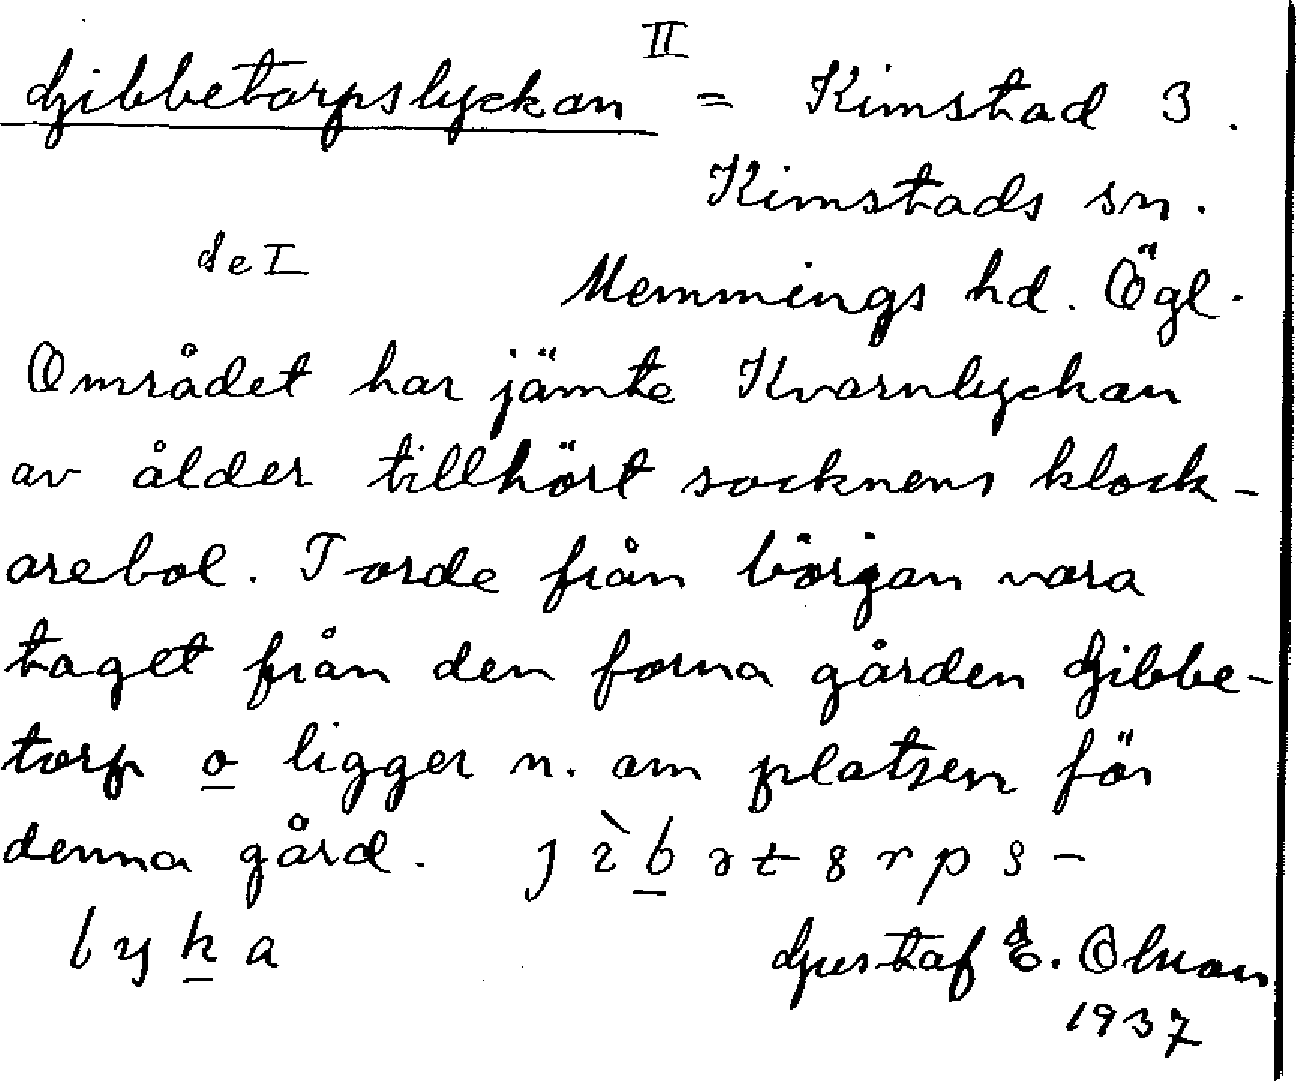 II
Gibbetorpslyckan = Kimstad 3.
Kimstads sn.
se I
Memmings hd. Ögl.
Området har jämte Kvarnlyckan
av ålder tillhört socknens klock-
arebol. Torde från början vara
taget från den forna gården Gibbe-
torp o ligger n. om platsen för
denna gård.
Gustaf E. Olson
1937